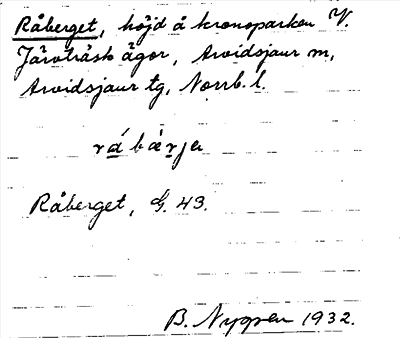 Råberget, höjd å kronoparken V.
Järvträsk ägor, Arvidsjaur m,
Arvidsjaur tg, Norrb. l.
rábärja
Råberget, G. 43.
B. Nygren 1932.